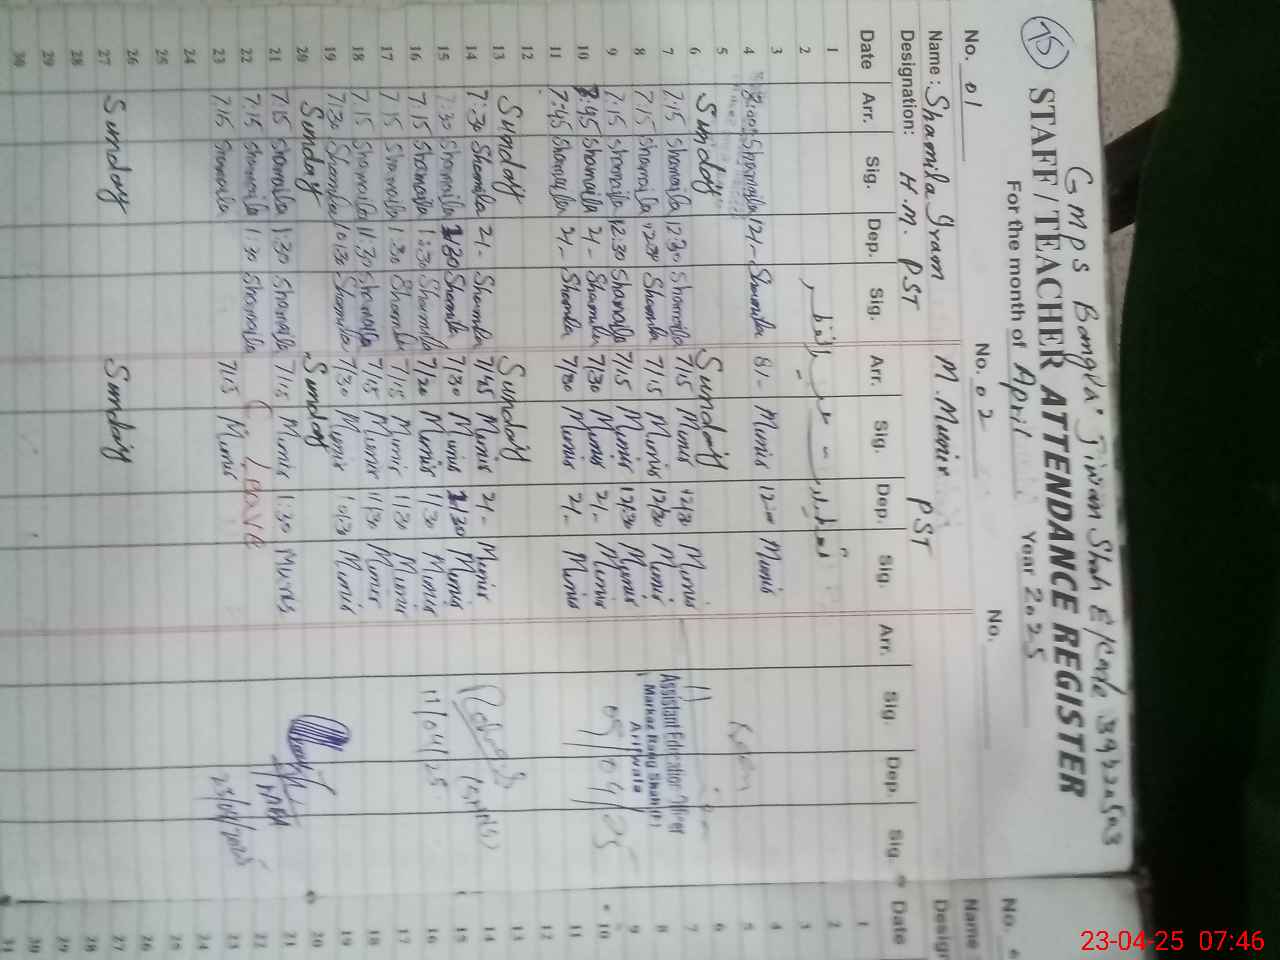 75
GMPS Bangla Jiwan Shah E/Code 39320503
STAFF/TEACHER ATTENDANCE REGISTER
For the month of April Year 2025
No. 01 No. 02 No.
Name: Shamila Iram M. Munir
Designation: H.M. PST PST
Date Arr. Sig. Dep. Sig. Arr. Sig. Dep. Sig. Arr. Sig. Dep. Sig.
1
2
3
4 8:00 Shamaila 12/- Shamila 8/- Munir 12:00 Munir
5
6 Sunday Sunday
7 7:15 Shamaila 12:30 Shamaila 7/15 Munir 12/30 Munir
8 7:15 Shamaila 12:30 Shamila 7/15 Munir 12/30 Munir
9 7:15 Shamaila 12:30 Shamaila 7/15 Munir 12/30 Munir
10 8:45 Shamaila 2/- Shamila 7/30 Munir 2/- Munir
11 7:45 Shamaila 2/- Shamila 7/30 Munir 2/- Munir
12
13 Sunday Sunday
14 7:30 Shamila 2/- Shamila 7/45 Munir 2/- Munir
15 7:30 Shamaila 1/30 Shamila 7/30 Munir 1/30 Munir
16 7:15 Shamaila 1:30 Shamaila 7/20 Munir 1/30 Munir
17 7:15 Shamaila 1:30 Shamila 7/15 Munir 1/30 Munir
18 7:15 Shamaila 11:30 Shamaila 7/15 Munir 11/30 Munir
19 7:30 Shamila 10:30 Shamila 7/30 Munir 10/30 Munir
20 Sunday Sunday
21 7:15 Shamaila 1:30 Shamaila 7/15 Munir 1:30 Munir
22 7:15 Shamaila 1:30 Shamaila Leave
23 7:15 Shamaila 7/15 Munir
24
25
26
27 Sunday Sunday
28
29
30
Assistant Education Officer
Markaz Rang Shah
Arifwala
09/04/25
11/04/25
23/04/2025
No.
Name
Design
Date
1
2
3
4
5
6
7
8
9
10
11
12
13
14
15
16
17
18
19
20
21
22
23
24
25
26
27
28
29
30
31
23-04-25 07:46